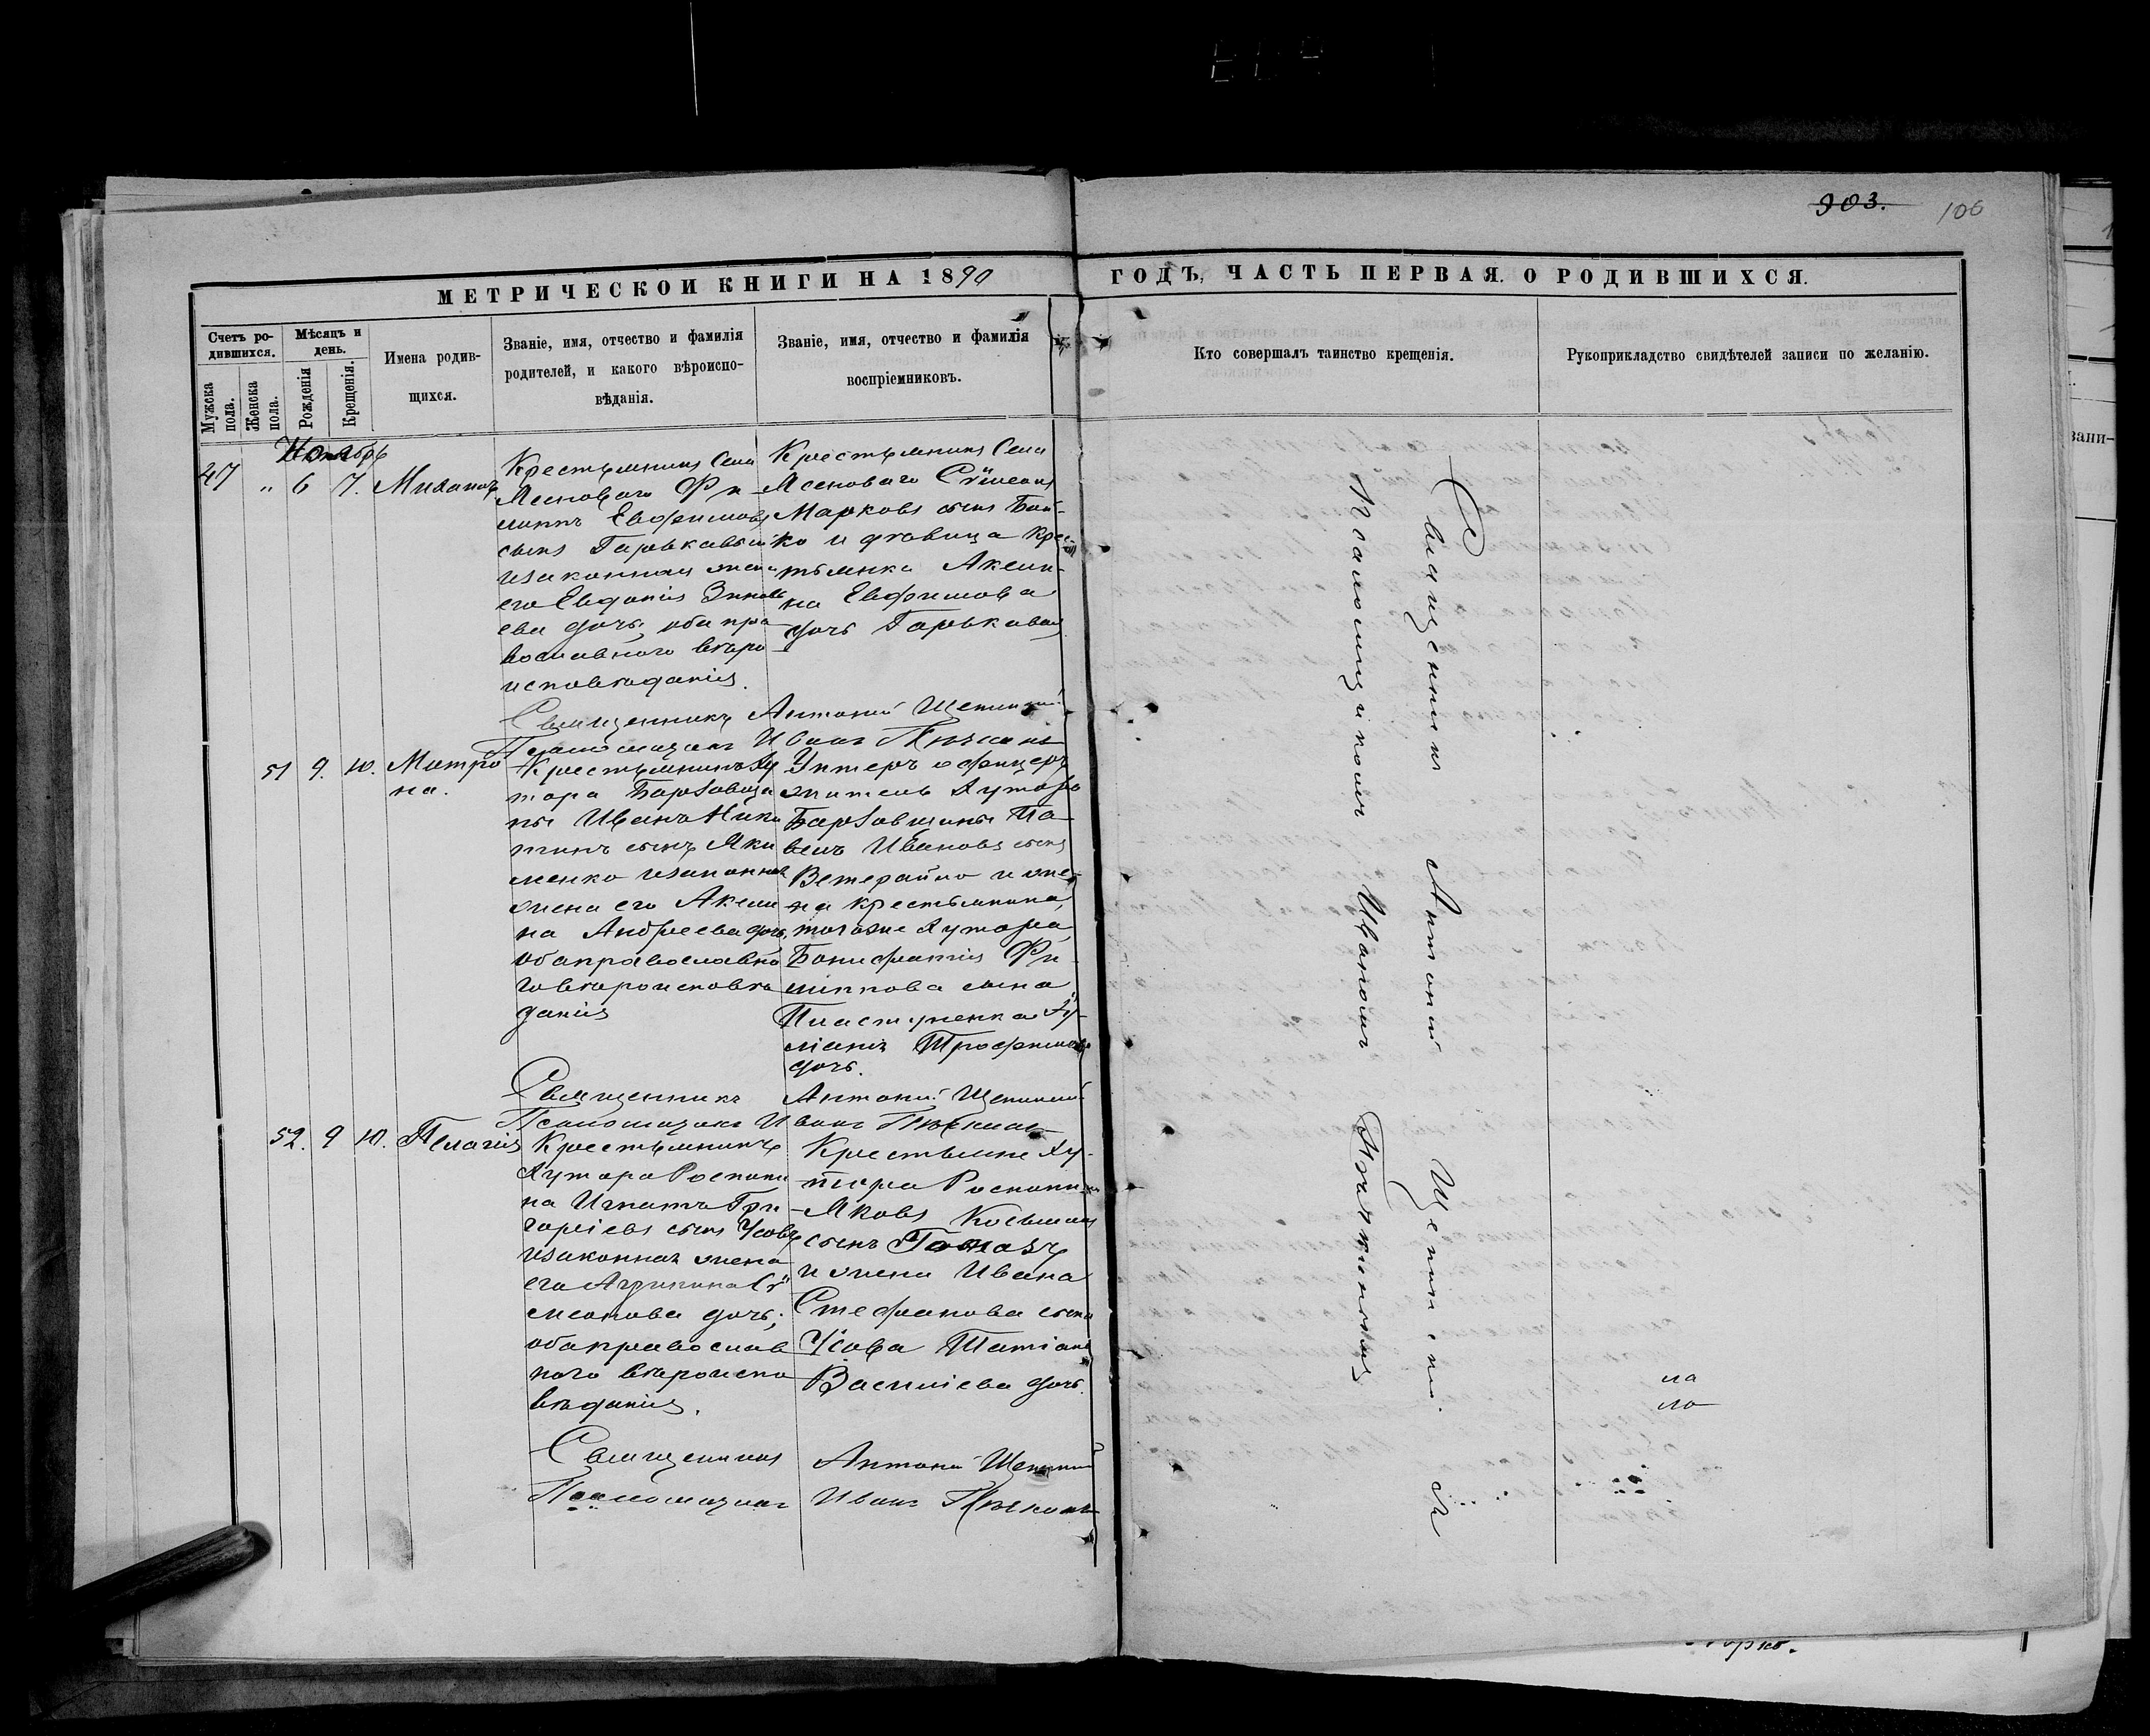 303. 106
МЕТРИЧЕСКОЙ КНИГИ НА 1890 ГОДЪ, ЧАСТЬ ПЕРВАЯ. О РОДИВШИХСЯ.
Счетъ ро-
дившихся.
Мужска
пола.
Женска
пола.
Мѣсяцъ и
день.
Рожденія
Крещенія.
Имена родив-
щихся.
Званіе, имя, отчество и фамилія
родителей, и какого вѣроиспо-
вѣданія.
Званіе, имя, отчество и фамилія
воспріемниковъ.
Кто совершалъ таинство крещенія.
Рукоприкладство свидѣтелей записи по желанію.
Ноябрь
47 " 6 7. Михаилъ
Крестьянинъ Села
Ясеноваго Фи-
липпъ Евфимовъ
сынъ Гарькавый
изаконная жена
его Евдокія Зинове
ева дочь, оба пра
вославного вѣро
исповѣданія.
Крестьянинъ Села
Ясеноваго Сѵмеонъ
Марковъ сынъ Бой-
ко и дѣвица Крес-
тьянка Аксин-
на Евфимова
дочь Гарькавая
Священникъ Антоній
Псаломщикъ Иванъ
51 9. 10. Матро
на.
Крестьянинъ Ху
тора
ны Иванъ Ники
тинъ сынъ Яки
менко изаконная
жена его Аксин
на Андреева дочь,
оба православно
го вѣроисповѣ
данія
Унтеръ офицеръ
житель Хутора
Па-
велъ Ивановъ сынъ
и же-
на крестьянина
тогоже Хутора
Бонифатія Фи-
липпова сына
Iу-
ліанія Трофимова
дочь.
Священникъ Антоній
Псаломщикъ Иванъ
52. 9 10. Пелагія
Крестьянинъ
Хутора
Игнатъ Гри-
горіевъ сынъ Усовъ
изаконная жена
его Агрипина Сѵ
меонова дочь;
оба православ
ного вѣроиспо
вѣданія.
Крестьяне Ху-
тора
Яковъ Косьминъ
сынъ
и жена Ивана
Стефанова сына
Усова Татіана
Василіева дочь.
Священникъ Антоній
Псаломщикъ Иванъ
Священникъ Антоній
Псаломщикомъ Иваномъ